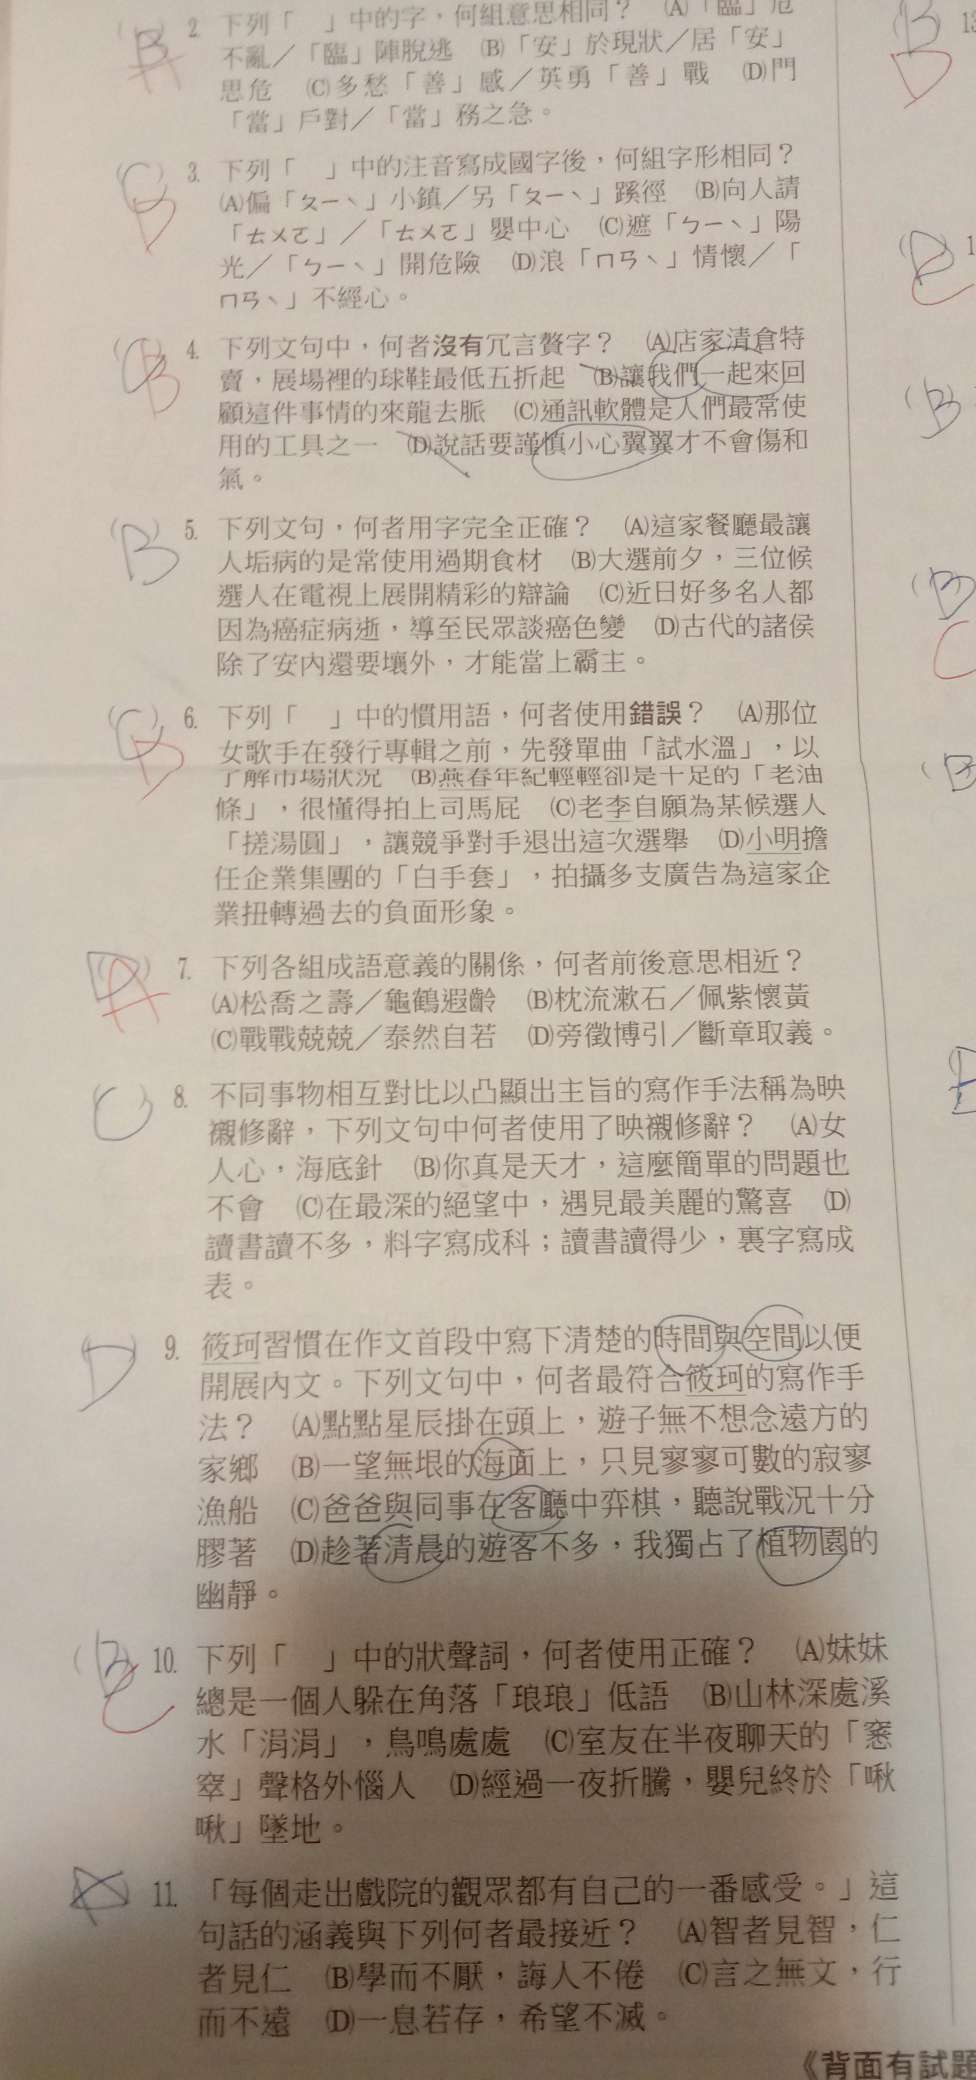 2. 下列「　」中的字，何組意思相同？　(A)「臨」危
不亂／「臨」陣脫逃　(B)「安」於現狀／居「安」
思危　(C)多愁「善」感／英勇「善」戰　(D)門
「當」戶對／「當」務之急。
3. 下列「　」中的注音寫成國字後，何組字形相同？
(A)偏「ㄆㄧˋ」小鎮／另「ㄆㄧˋ」蹊徑　(B)向人請
「ㄊㄨㄛ」／「ㄊㄨㄛ」嬰中心　(C)遮「ㄅㄧˋ」陽
光／「ㄅㄧˋ」開危險　(D)浪「ㄇㄢˋ」情懷／「
ㄇㄢˋ」不經心。
4. 下列文句中，何者沒有冗言贅字？　(A)店家清倉特
賣，展場裡的球鞋最低五折起　(B)讓我們一起來回
顧這件事情的來龍去脈　(C)通訊軟體是人們最常使
用的工具之一　(D)說話要謹慎小心翼翼才不會傷和
氣。
5. 下列文句，何者用字完全正確？　(A)這家餐廳最讓
人垢病的是常使用過期食材　(B)大選前夕，三位候
選人在電視上展開精彩的辯論　(C)近日好多名人都
因為癌症病逝，導至民眾談癌色變　(D)古代的諸侯
除了安內還要壤外，才能當上霸主。
6. 下列「　」中的慣用語，何者使用錯誤？　(A)那位
女歌手在發行專輯之前，先發單曲「試水溫」，以
了解市場狀況　(B)燕春年紀輕輕卻是十足的「老油
條」，很懂得拍上司馬屁　(C)老李自願為某候選人
「搓湯圓」，讓競爭對手退出這次選舉　(D)小明擔
任企業集團的「白手套」，拍攝多支廣告為這家企
業扭轉過去的負面形象。
7. 下列各組成語意義的關係，何者前後意思相近？
(A)松喬之壽／龜鶴遐齡　(B)枕流漱石／佩紫懷黃
(C)戰戰兢兢／泰然自若　(D)旁徵博引／斷章取義。
(C) 8. 不同事物相互對比以凸顯出主旨的寫作手法稱為映
襯修辭，下列文句中何者使用了映襯修辭？　(A)女
人心，海底針　(B)你真是天才，這麼簡單的問題也
不會　(C)在最深的絕望中，遇見最美麗的驚喜　(D)
讀書讀不多，料字寫成科；讀書讀得少，裏字寫成
表。
(D) 9. 筱珂習慣在作文首段中寫下清楚的時間與空間以便
開展內文。下列文句中，何者最符合筱珂的寫作手
法？　(A)點點星辰掛在頭上，遊子無不想念遠方的
家鄉　(B)一望無垠的海面上，只見寥寥可數的寂寥
漁船　(C)爸爸與同事在客廳中弈棋，聽說戰況十分
膠著　(D)趁著清晨的遊客不多，我獨占了植物園的
幽靜。
10. 下列「　」中的狀聲詞，何者使用正確？　(A)妹妹
總是一個人躲在角落「琅琅」低語　(B)山林深處溪
水「涓涓」，鳥鳴處處　(C)室友在半夜聊天的「窸
窣」聲格外惱人　(D)經過一夜折騰，嬰兒終於「啾
啾」墜地。
11. 「每個走出戲院的觀眾都有自己的一番感受。」這
句話的涵義與下列何者最接近？　(A)智者見智，仁
者見仁　(B)學而不厭，誨人不倦　(C)言之無文，行
而不遠　(D)一息若存，希望不滅。
《背面有試題